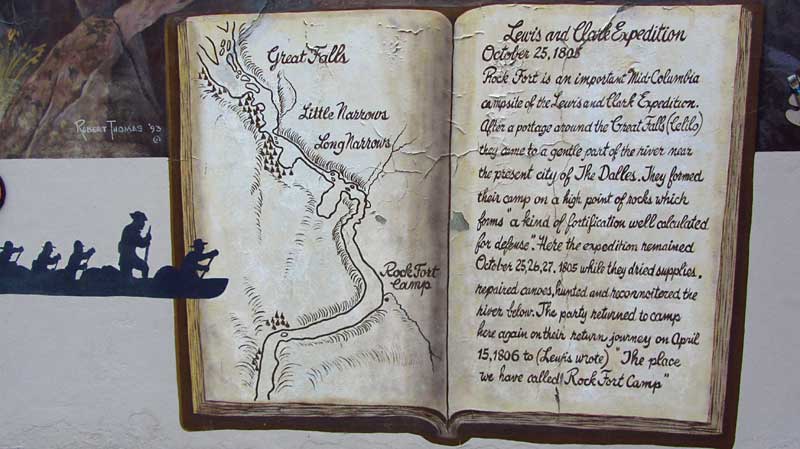 ROBERT THOMAS '93
Great Falls
Little Narrows
Long Narrows
Rock Fort
Camp
Lewis and Clark Expedition
October 25, 1805
Rock Fort is an important Mid-Columbia
campsite of the Lewis and Clark Expedition.
After a portage around the Great Falls (Celilo)
they came to a gentle part of the river near
the present city of The Dalles. They formed
their camp on a high point of rocks which
forms "a kind of fortification well calculated
for defense". Here the expedition remained
October 25, 26, 27, 1805 while they dried supplies,
repaired canoes, hunted and reconnoitered the
river below. The party returned to camp
here again on their return journey on April
15, 1806 to (Lewis wrote) "The place
we have called Rock Fort Camp"